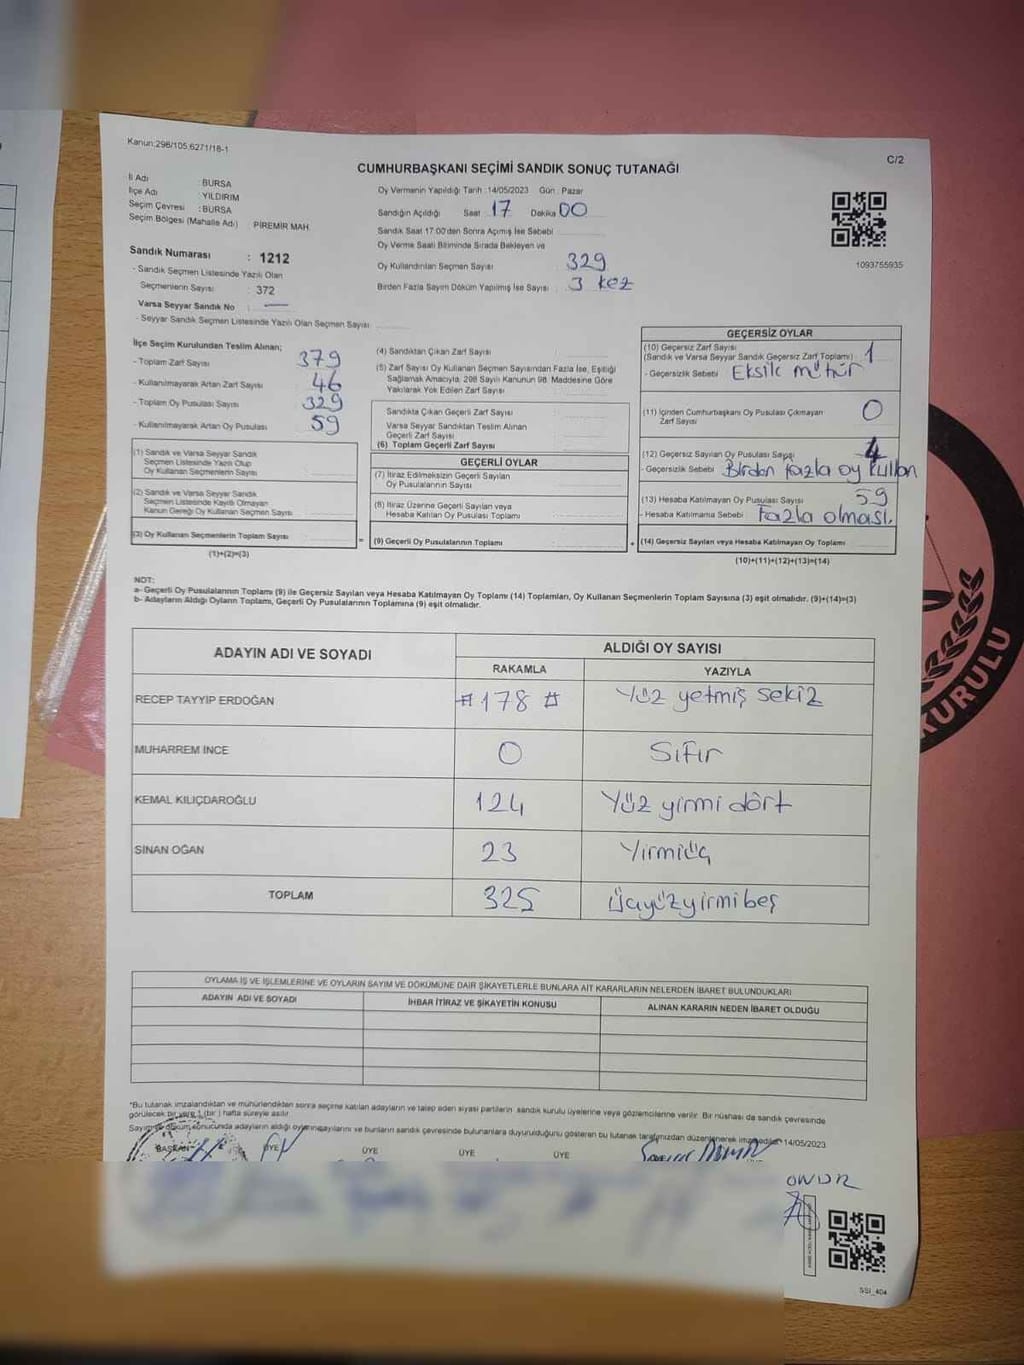 Kanun:298/105,6271/18-1
C/2
CUMHURBAŞKANI SEÇİMİ SANDIK SONUÇ TUTANAĞI
İl Adı : BURSA
İlçe Adı : YILDIRIM
Seçim Çevresi : BURSA
Seçim Bölgesi (Mahalle Adı) PİREMİR MAH
Sandık Numarası : 1212
- Sandık Seçmen Listesinde Yazılı Olan
Seçmenlerin Sayısı : 372
Varsa Seyyar Sandık No : —
- Seyyar Sandık Seçmen Listesinde Yazılı Olan Seçmen Sayısı
Oy Vermenin Yapıldığı Tarih :14/05/2023 Gün : Pazar
Sandığın Açıldığı Saat 17 Dakika 00
Sandık Saat 17:00'den Sonra Açımış İse Sebebi
Oy Verme Saati Bitiminde Sırada Bekleyen ve
Oy Kullandırılan Seçmen Sayısı 329
Birden Fazla Sayım Döküm Yapılmış İse Sayısı : 3 kez
1093755935
İlçe Seçim Kurulundan Teslim Alınan;
- Toplam Zarf Sayısı 379
- Kullanılmayarak Artan Zarf Sayısı 46
- Toplam Oy Pusulası Sayısı 329
- Kullanılmayarak Artan Oy Pusulası 59
(1) Sandık ve Varsa Seyyar Sandık
Seçmen Listesinde Yazılı Olup
Oy Kullanan Seçmenlerin Sayısı
(2) Sandık ve Varsa Seyyar Sandık
Seçmen Listesinde Kayıtlı Olmayan
Kanun Gereği Oy Kullanan Seçmen Sayısı
(3) Oy Kullanan Seçmenlerin Toplam Sayısı
(1)+(2)=(3)
(4) Sandıktan Çıkan Zarf Sayısı
(5) Zarf Sayısı Oy Kullanan Seçmen Sayısından Fazla İse, Eşitliği
Sağlamak Amacıyla, 298 Sayılı Kanunun 98. Maddesine Göre
Yakılarak Yok Edilen Zarf Sayısı
Sandıkta Çıkan Geçerli Zarf Sayısı
Varsa Seyyar Sandıktan Teslim Alınan
Geçerli Zarf Sayısı
(6) Toplam Geçerli Zarf Sayısı
GEÇERLİ OYLAR
(7) İtiraz Edilmeksizin Geçerli Sayılan
Oy Pusulalarının Sayısı
(8) İtiraz Üzerine Geçerli Sayılan veya
Hesaba Katılan Oy Pusulası Toplamı
= (9) Geçerli Oy Pusulalarının Toplamı
GEÇERSİZ OYLAR
(10) Geçersiz Zarf Sayısı
(Sandık ve Varsa Seyyar Sandık Geçersiz Zarf Toplamı) 1
- Geçersizlik Sebebi Eksik mühür
(11) İçinden Cumhurbaşkanı Oy Pusulası Çıkmayan
Zarf Sayısı 0
(12) Geçersiz Sayılan Oy Pusulası Sayısı 4
- Geçersizlik Sebebi Birden fazla oy kullan
(13) Hesaba Katılmayan Oy Pusulası Sayısı 59
- Hesaba Katılmama Sebebi Fazla olması.
+ (14) Geçersiz Sayılan veya Hesaba Katılmayan Oy Toplamı
(10)+(11)+(12)+(13)=(14)
NOT:
a- Geçerli Oy Pusulalarının Toplamı (9) ile Geçersiz Sayılan veya Hesaba Katılmayan Oy Toplamı (14) Toplamları, Oy Kullanan Seçmenlerin Toplam Sayısına (3) eşit olmalıdır. (9)+(14)=(3)
b- Adayların Aldığı Oyların Toplamı, Geçerli Oy Pusulalarının Toplamına (9) eşit olmalıdır.
ADAYIN ADI VE SOYADI ALDIĞI OY SAYISI
RAKAMLA YAZIYLA
RECEP TAYYİP ERDOĞAN #178# Yüz yetmiş sekiz
MUHARREM İNCE 0 Sıfır
KEMAL KILIÇDAROĞLU 124 Yüz yirmi dört
SİNAN OĞAN 23 Yirmiüç
TOPLAM 325 Üçyüzyirmibeş
OYLAMA İŞ VE İŞLEMLERİNE VE OYLARIN SAYIM VE DÖKÜMÜNE DAİR ŞİKAYETLERLE BUNLARA AİT KARARLARIN NELERDEN İBARET BULUNDUKLARI
ADAYIN ADI VE SOYADI İHBAR İTİRAZ VE ŞİKAYETİN KONUSU ALINAN KARARIN NEDEN İBARET OLDUĞU
*Bu tutanak imzalandıktan ve mühürlendikten sonra seçime katılan adayların ve talep eden siyasi partilerin sandık kurulu üyelerine veya gözlemcilerine verilir. Bir nüshası da sandık çevresinde
görülecek bir yere 1 (bir) hafta süreyle asılır.
Sayım ve döküm sonucunda adayların aldığı oyların sayılarını ve bunların sandık çevresinde bulunanlara duyurulduğunu gösteren bu tutanak tarafımızdan düzenlenerek imza edildi. 14/05/2023
BAŞKAN ÜYE ÜYE ÜYE ÜYE
ONUR
SSİ_404
KURULU